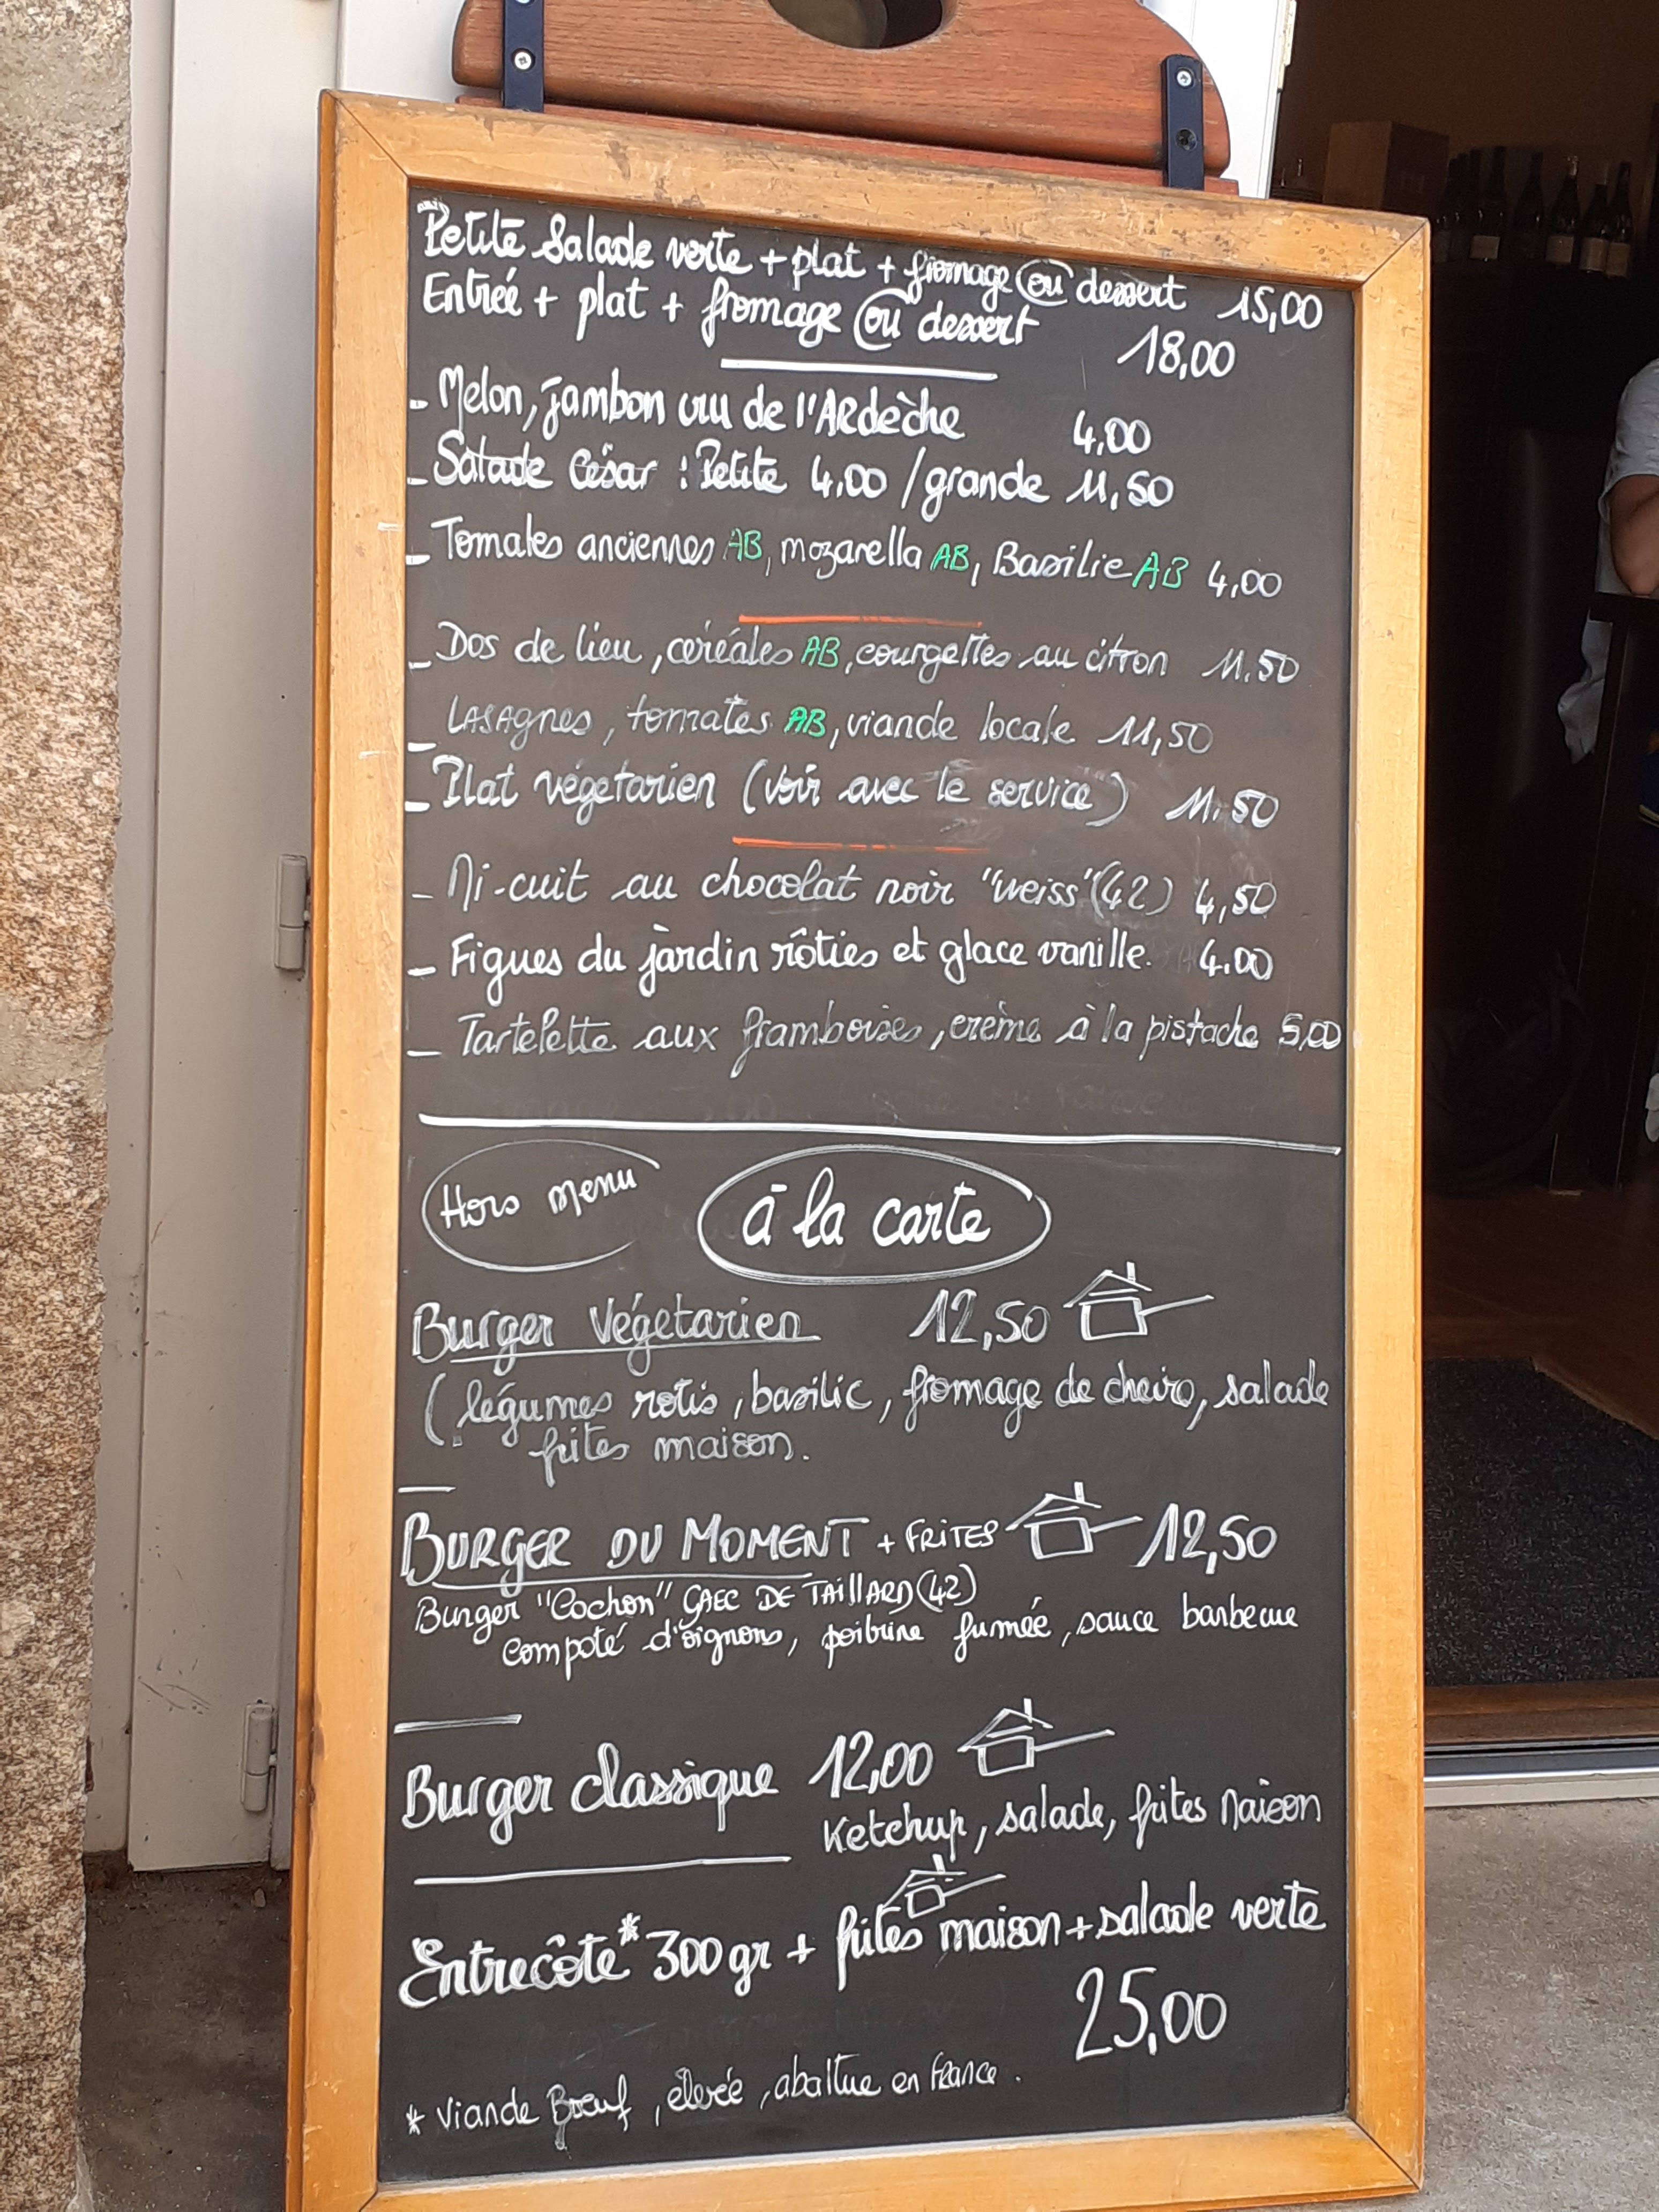 Petite Salade verte + plat + fromage ou dessert 15,00
Entrée + plat + fromage ou dessert 18,00
- Melon, jambon cru de l'Ardèche 4,00
- Salade César : Petite 4,00 / grande 11,50
- Tomates anciennes AB, mozarella AB, Basilic AB 4,00
- Dos de lieu, céréales AB, courgettes au citron 11.50
- LASAgnes, tomates AB, viande locale 11,50
- Plat végétarien (voir avec le service) 11.50
- Mi-cuit au chocolat noir "weiss" (42) 4,50
- Figues du jardin rôties et glace vanille. 4.00
- Tartelette aux framboises, crème à la pistache 5,00
Hors menu
à la carte
Burger Végétarien 12,50
(légumes rotis, basilic, fromage de chèvre, salade
frites maison.
BURGER DU MOMENT + FRITES 12,50
Burger "Cochon" GAEC DE TAillARD (42)
compoté d'oignons, poitrine fumée, sauce barbecue
Burger classique 12,00
Ketchup, salade, frites Maison
Entrecôte* 300 gr + frites maison + salade verte
25,00
* Viande Boeuf, élevée, abattue en France.